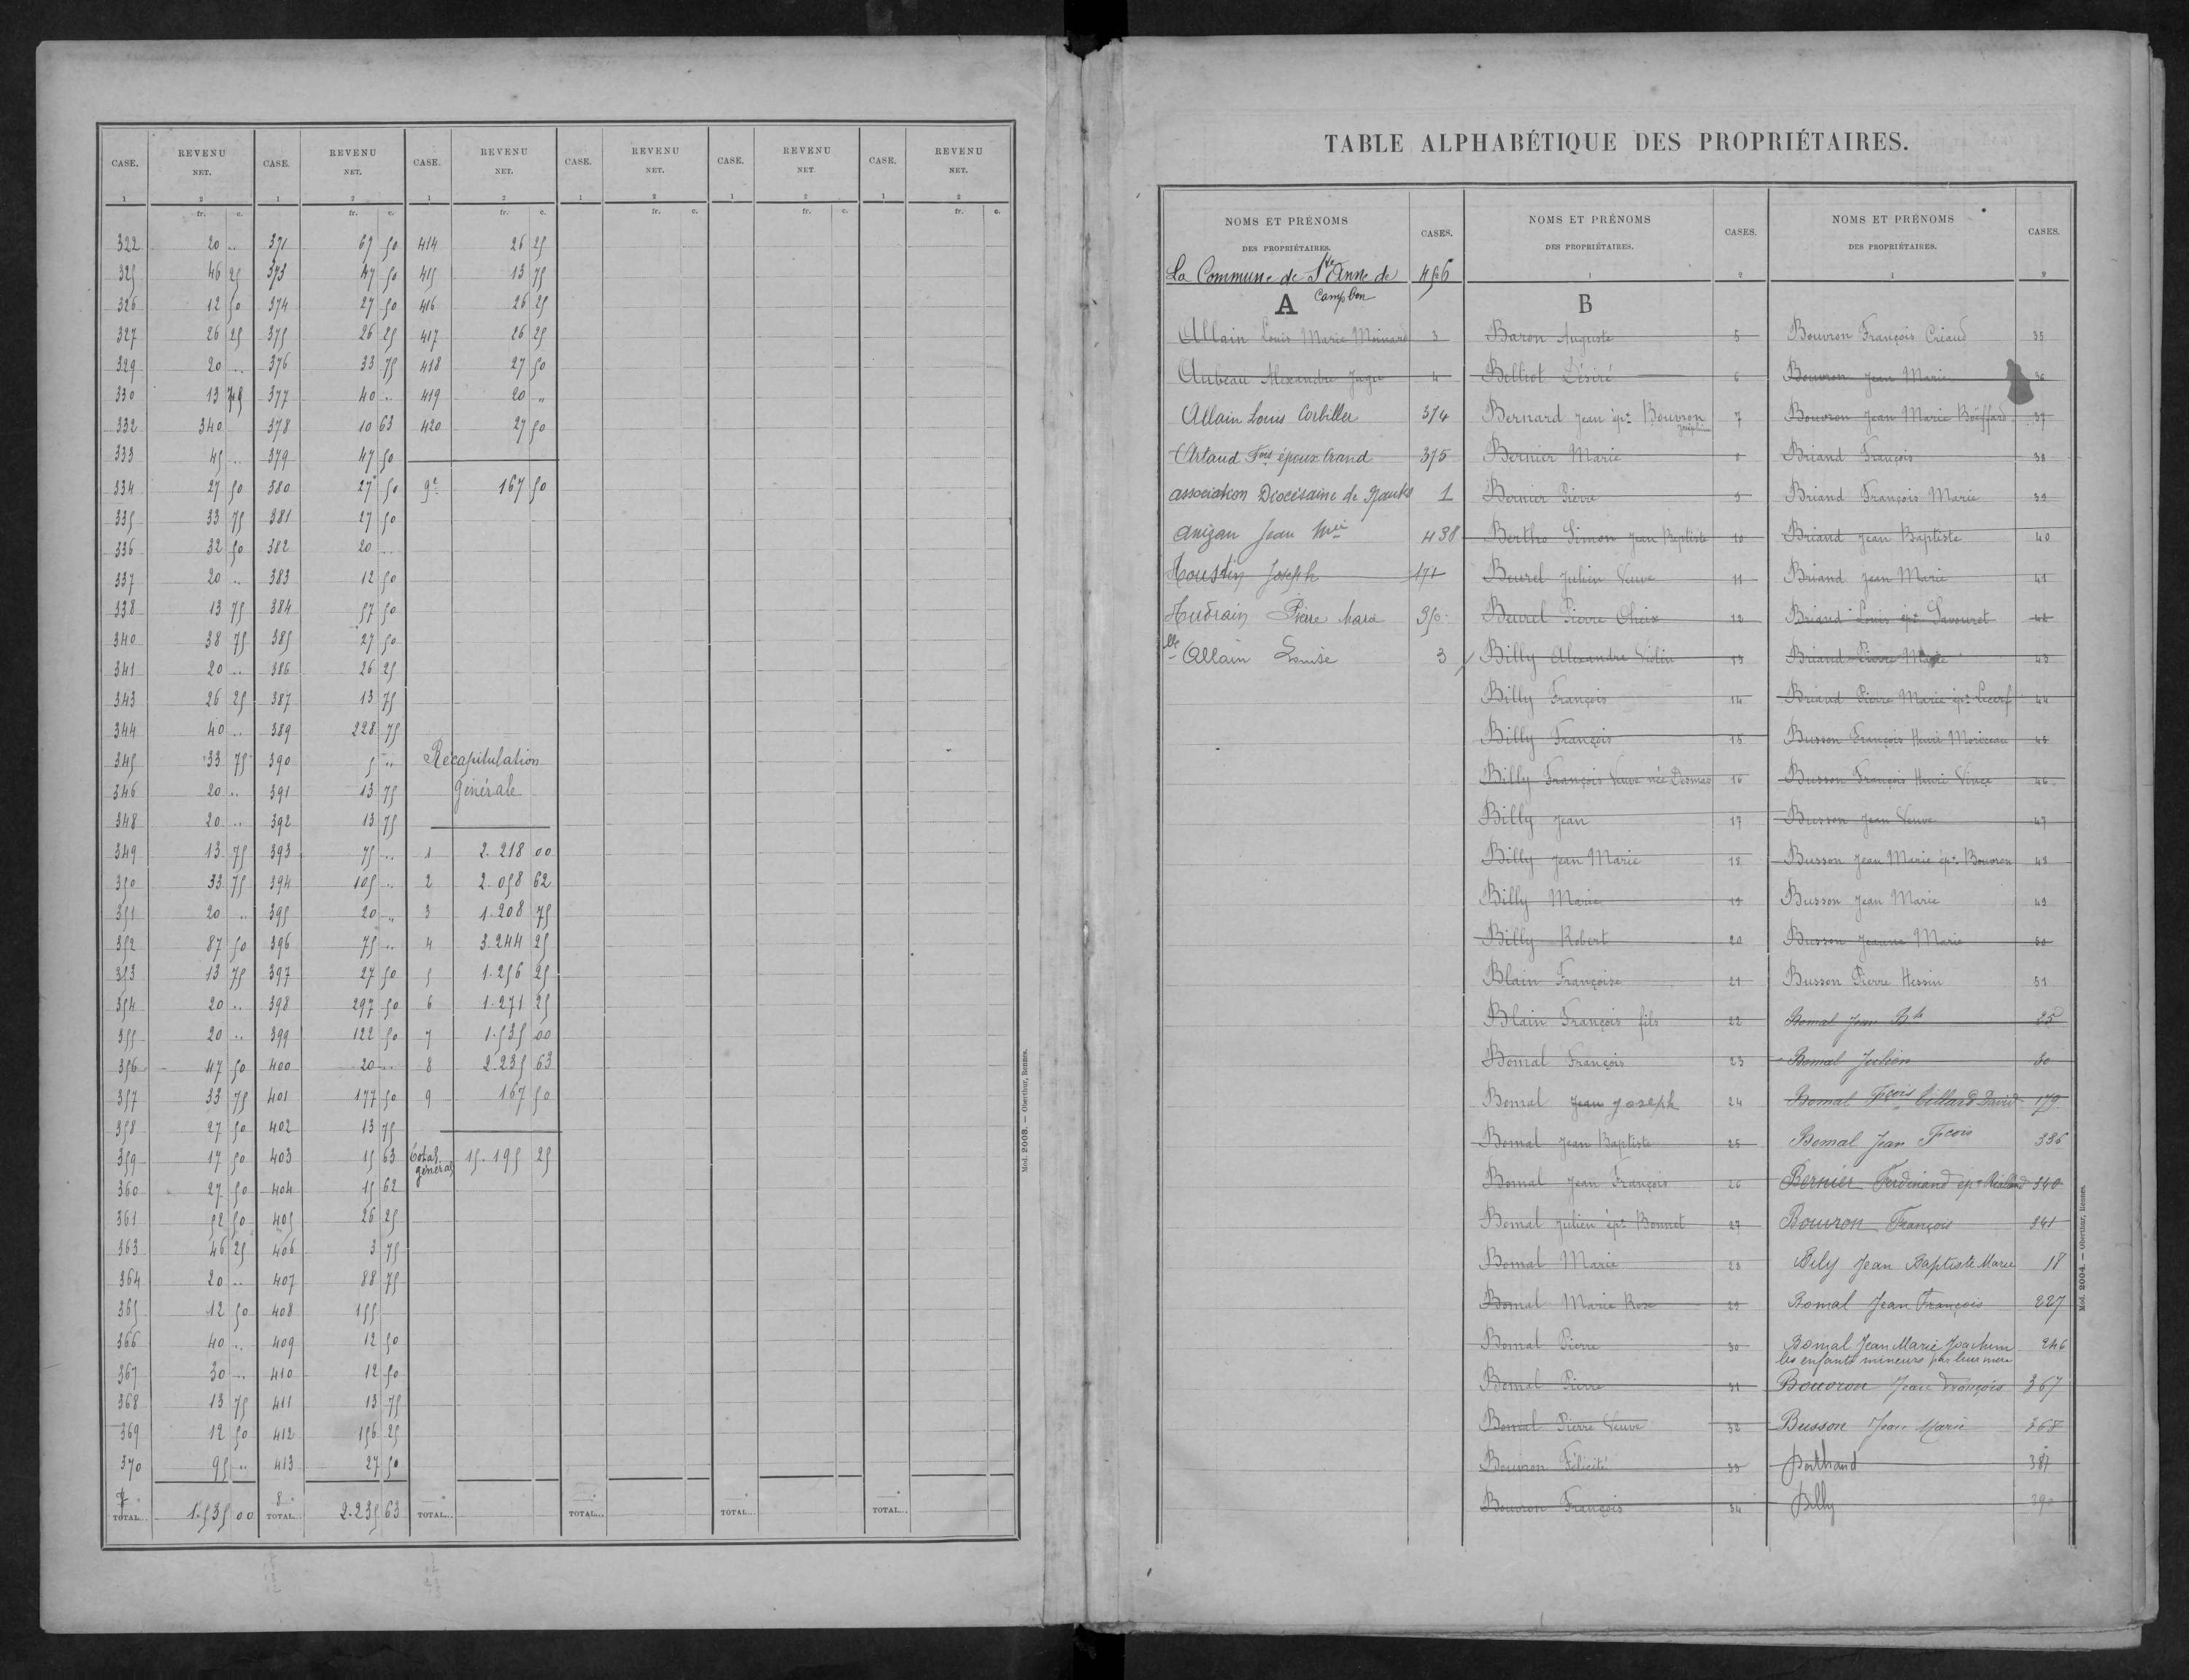 CASE. REVENU NET. CASE. REVENU NET. CASE. REVENU NET. CASE. REVENU NET. CASE. REVENU NET. CASE. REVENU NET.
1 2 1 2 1 2 1 2 1 2 1 2
fr. c. fr. c. fr. c. fr. c. fr. c. fr. c.
322 20 .. 371 67 50 414 26 25
325 46 25 373 47 50 415 13 75
326 12 50 374 27 50 416 26 25
327 26 25 375 26 25 417 26 25
329 20 .. 376 33 75 418 27 50
330 13 75 377 40 .. 419 20 "
332 340 378 10 63 420 27 50
333 45 .. 379 47 50
334 27 50 380 27 50 9e 167 50
335 33 75 381 27 50
336 32 50 382 20 ..
337 20 .. 383 12 50
338 13 75 384 57 50
340 38 75 385 27 50
341 20 .. 386 26 25
343 26 25 387 13 75
344 40 .. 389 228 75
345 33 75 390 5 .. Récapitulation
346 20 .. 391 13 75 Générale
348 20 .. 392 13 75
349 13 75 393 75 .. 1 2.218 00
350 33 75 394 105 .. 2 2.058 62
351 20 .. 395 20 .. 3 1.208 75
352 87 50 396 75 .. 4 3.244 25
353 13 75 397 27 50 5 1.256 25
354 20 .. 398 297 50 6 1.271 25
355 20 .. 399 122 50 7 1.535 00
356 47 50 400 20 .. 8 2.235 63
357 33 75 401 177 50 9 167 50
358 27 50 402 13 75
359 17 50 403 15 63 Total général 15.195 25
360 27 50 404 15 62
361 52 50 405 26 25
363 46 25 406 3 75
364 20 .. 407 88 75
365 12 50 408 155
366 40 .. 409 12 50
367 30 .. 410 12 50
368 13 75 411 13 75
369 12 50 412 156 25
370 95 .. 413 27 50
7 TOTAL... 1.535 00 8 TOTAL... 2.235 63 TOTAL... TOTAL... TOTAL... TOTAL...
Mod. 2003. — Oberthur, Rennes.
TABLE ALPHABÉTIQUE DES PROPRIÉTAIRES.
NOMS ET PRÉNOMS DES PROPRIÉTAIRES. CASES.
La Commune de Ste Anne de Campbon 456
A
Allain Louis Marie Moinard 3
Aubeau Alexandre Jagu 4
Allain Louis Corbiller 374
Artaud Fois époux Crand 375
association Diocésaine de Nantes 1
Anizan Jean Mie 438
Houstin Joseph 171
Audrain Pierre Mara 350
Elle Allain Louise 3
NOMS ET PRÉNOMS DES PROPRIÉTAIRES. CASES.
1 2
B
Baron Auguste 5
Belliot Désiré 6
Bernard Jean ép. Bouvron Joséphine 7
Bernier Marie 8
Bernier Pierre 9
Bertho Simon Jean Baptiste 10
Beurel Julien Veuve 11
Beurel Pierre Oheix 12
Billy Alexandre Violin 13
Billy François 14
Billy François 15
Billy François Veuve née Desmas 16
Billy Jean 17
Billy Jean Marie 18
Billy Marie 19
Billy Robert 20
Blain Françoise 21
Blain François fils 22
Bomal François 23
Bomal Jean Joseph 24
Bomal Jean Baptiste 25
Bomal Jean François 26
Bomal Julien ép. Bonnet 27
Bomal Marie 28
Bomal Marie Rose 29
Bomal Pierre 30
Bomal Pierre 31
Bomal Pierre Veuve 32
Bouvron Félicité 33
Bouvron François 34
NOMS ET PRÉNOMS DES PROPRIÉTAIRES. CASES.
1 2
Bouvron François Criaud 35
Bouvron Jean Marie 36
Bouvron Jean Marie Boëffard 37
Briand François 38
Briand François Marie 39
Briand Jean Baptiste 40
Briand Jean Marie 41
Briand Louis ép. Savouret 42
Briand Pierre Marie 43
Briand Pierre Marie ép. Lecerf 44
Busson François Henri Moriceau 45
Busson François Henri Vince 46
Busson Jean Veuve 47
Busson Jean Marie ép. Bouvron 48
Busson Jean Marie 49
Busson Jeanne Marie 50
Busson Pierre Hessin 51
Bomal Jean Bte 25
Bomal Julien 30
Bomal Fçois Cillard David 179
Bomal Jean Fcois 336
Bernier Ferdinand ép. 340
Bouvron François 341
Bily Jean Baptiste Marie 18
Bomal Jean François 227
Bomal Jean Marie Joachim 246
les enfants mineurs par leur mère
Bouvron Jean François 367
Busson Jean Marie 368
Berthaud 387
Billy 390
Mod. 2004. — Oberthur, Rennes.